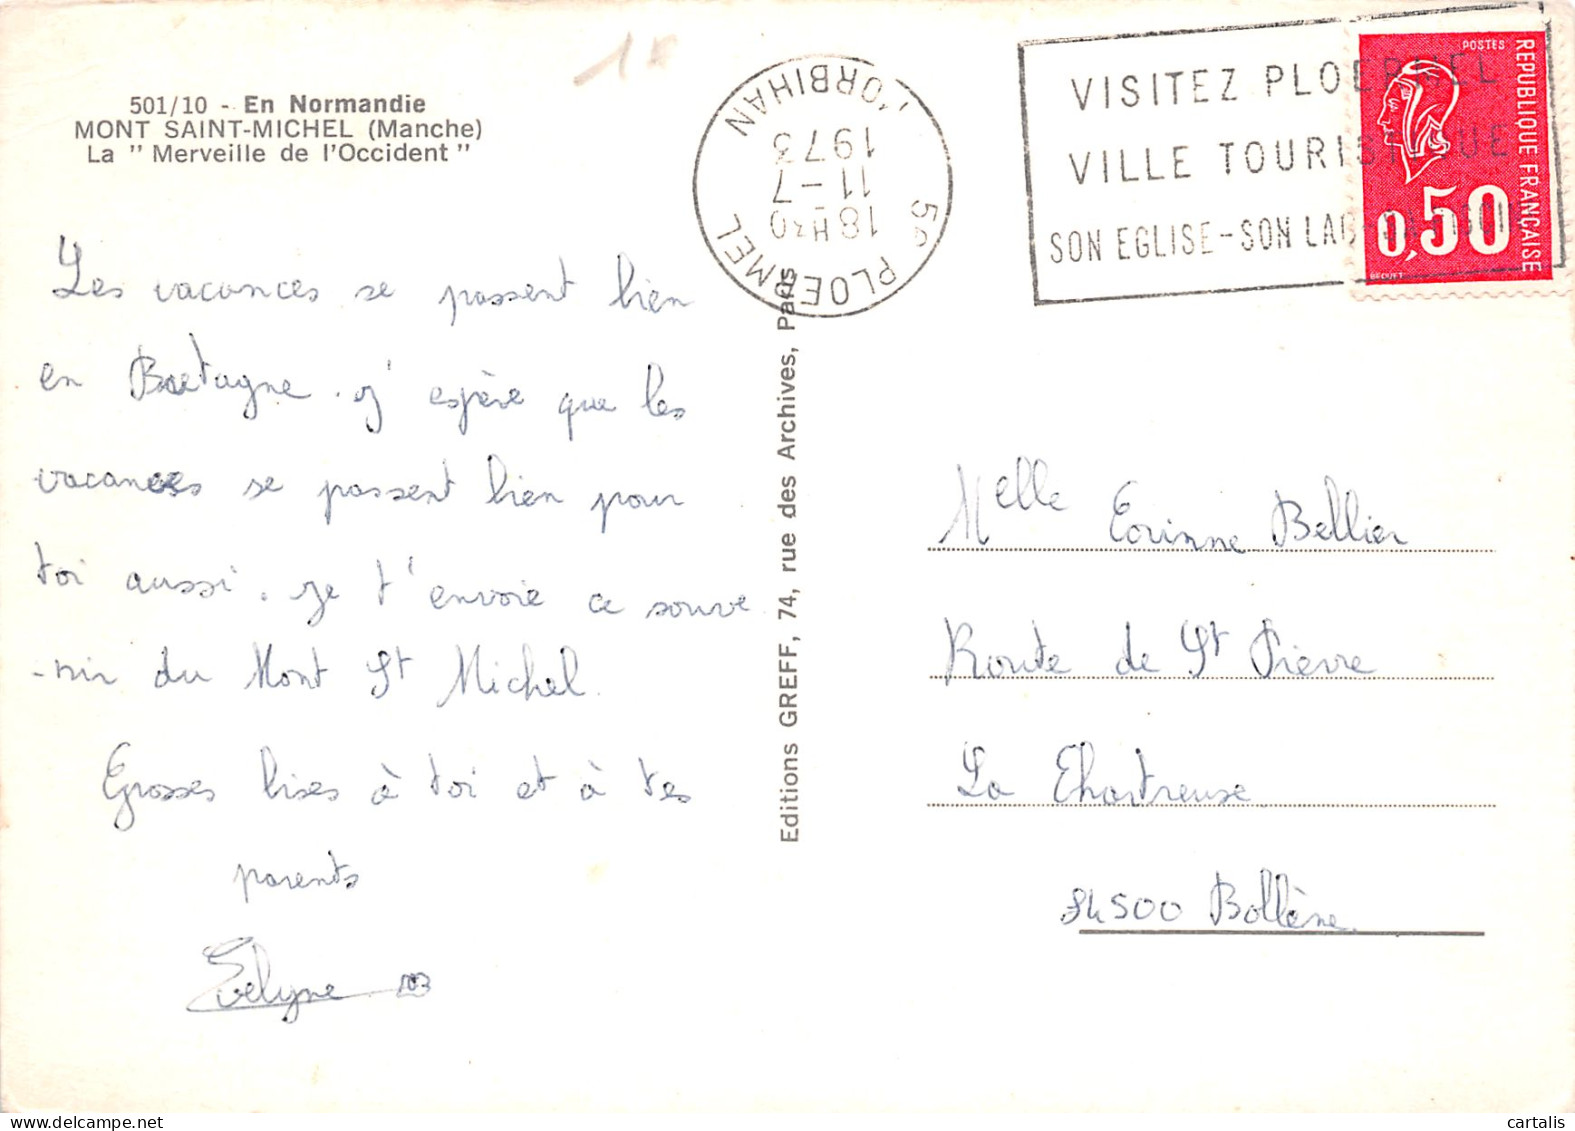 501/10 - En Normandie
MONT SAINT-MICHEL (Manche)
La " Merveille de l'Occident "
Les vacances se passent bien
en Bretagne. J'espère que les
vacances se passent bien pour
toi aussi. Je t'envoie ce souve
-nir du Mont St Michel.
Grosses bises à toi et à tes
parents
Evelyne
Editions GREFF, 74, rue des Archives, Paris
56 PLOERMEL
MORBIHAN
18H30
11-7
1973
VISITEZ PLOERMEL
VILLE TOURISTIQUE
SON EGLISE-SON LAC
POSTES
REPUBLIQUE FRANÇAISE
0,50
BEQUET
Melle Corinne Bellier
Route de St Pierre
La Chartreuse
84500 Bollène
cartalis